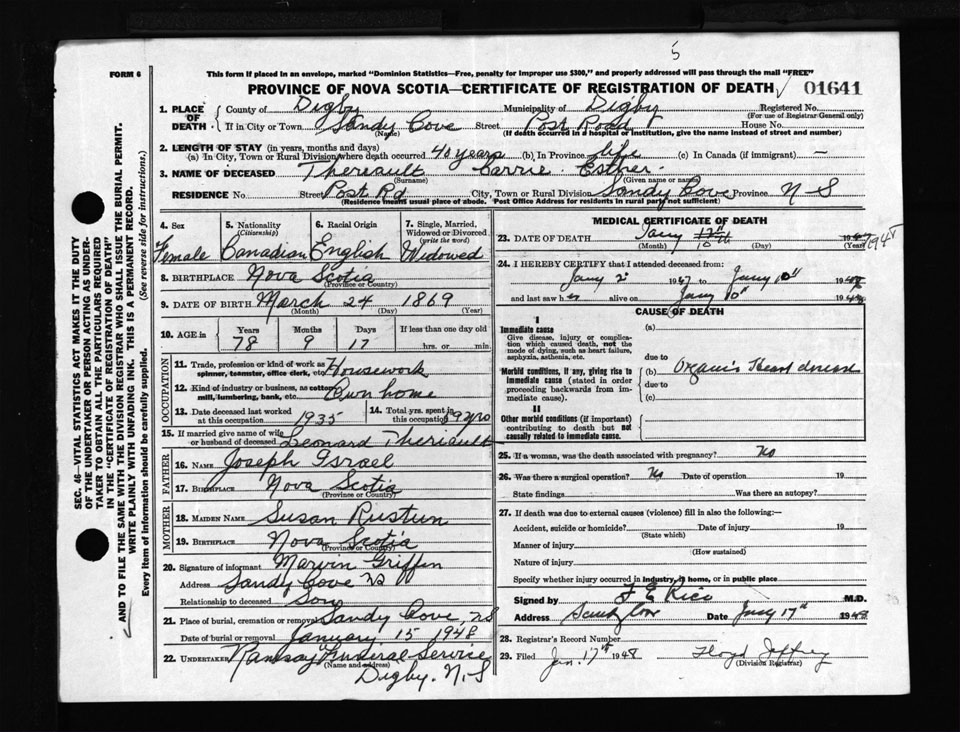 5
FORM 6
This form if placed in an envelope, marked "Dominion Statistics—Free, penalty for improper use $300," and properly addressed will pass through the mail "FREE"
PROVINCE OF NOVA SCOTIA—CERTIFICATE OF REGISTRATION OF DEATH 01641
1. PLACE OF DEATH County of Digby Municipality of Digby Registered No.
(For use of Registrar General only)
If in City or Town Sandy Cove Street Post Road House No.
(Name) (If death occurred in a hospital or institution, give the name instead of street and number)
2. LENGTH OF STAY (in years, months and days)
(a) In City, Town or Rural Division where death occurred 40 years (b) In Province life (c) In Canada (if immigrant) —
3. NAME OF DECEASED Theriault Carrie Esther
(Surname) (Given name or names)
RESIDENCE No. Street Post Rd City, Town or Rural Division Sandy Cove Province N S
(Residence means usual place of abode. Post Office Address for residents in rural parts not sufficient)
SEC. 46—VITAL STATISTICS ACT MAKES IT THE DUTY
OF THE UNDERTAKER OR PERSON ACTING AS UNDER-
TAKER TO OBTAIN ALL THE PARTICULARS REQUIRED
IN THE "CERTIFICATE OF REGISTRATION OF DEATH"
AND TO FILE THE SAME WITH THE DIVISION REGISTRAR WHO SHALL ISSUE THE BURIAL PERMIT.
WRITE PLAINLY WITH UNFADING INK. THIS IS A PERMANENT RECORD.
Every item of information should be carefully supplied. (See reverse side for instructions.)
4. Sex 5. Nationality (Citizenship) 6. Racial Origin 7. Single, Married, Widowed or Divorced (write the word)
Female Canadian English Widowed
8. BIRTHPLACE Nova Scotia
(Province or Country)
9. DATE OF BIRTH March 24 1869
(Month) (Day) (Year)
10. AGE in Years Months Days If less than one day old
78 9 17 hrs. or min.
OCCUPATION
11. Trade, profession or kind of work as spinner, teamster, office clerk, etc. Housework
12. Kind of industry or business, as cotton mill, lumbering, bank, etc. Own home
13. Date deceased last worked at this occupation 1935 14. Total yrs. spent in this occupation 59 yrs
15. If married give name of wife or husband of deceased Leonard Theriault
FATHER
16. NAME Joseph Israel
17. BIRTHPLACE Nova Scotia
(Province or Country)
MOTHER
18. MAIDEN NAME Susan
19. BIRTHPLACE Nova Scotia
(Province or Country)
20. Signature of informant Marvin Griffin
Address Sandy Cove NS
Relationship to deceased Son
21. Place of burial, cremation or removal Sandy Cove NS
Date of burial or removal January 15 1948
22. UNDERTAKER Ramsay Funeral Service
(Name and address)
Digby. N.S
MEDICAL CERTIFICATE OF DEATH
23. DATE OF DEATH Jany 17th 10 19 1948
(Month) (Day) (Year)
24. I HEREBY CERTIFY that I attended deceased from:
Jany 2 1947 to Jany 10th 1948
and last saw her alive on Jany 10th 1948
CAUSE OF DEATH
I
Immediate cause (a)
Give disease, injury or complica-
tion which caused death, not the
mode of dying, such as heart failure,
asphyxia, asthenia, etc. due to
Morbid conditions, if any, giving rise to (b) Organic Heart disease
immediate cause (stated in order due to
proceeding backwards from im-
mediate cause). (c)
II
Other morbid conditions (if important)
contributing to death but not
causally related to immediate cause.
25. If a woman, was the death associated with pregnancy? No
26. Was there a surgical operation? No Date of operation 19
State findings Was there an autopsy?
27. If death was due to external causes (violence) fill in also the following:—
Accident, suicide or homicide? Date of injury 19
(State which)
Manner of injury
(How sustained)
Nature of injury
Specify whether injury occurred in industry, home, or in public place
Signed by F E Rice M.D.
Address Sandy Cove Date Jany 17th 1948
28. Registrar's Record Number
29. Filed Jan. 17th 1948 Lloyd Jeffrey
(Division Registrar)